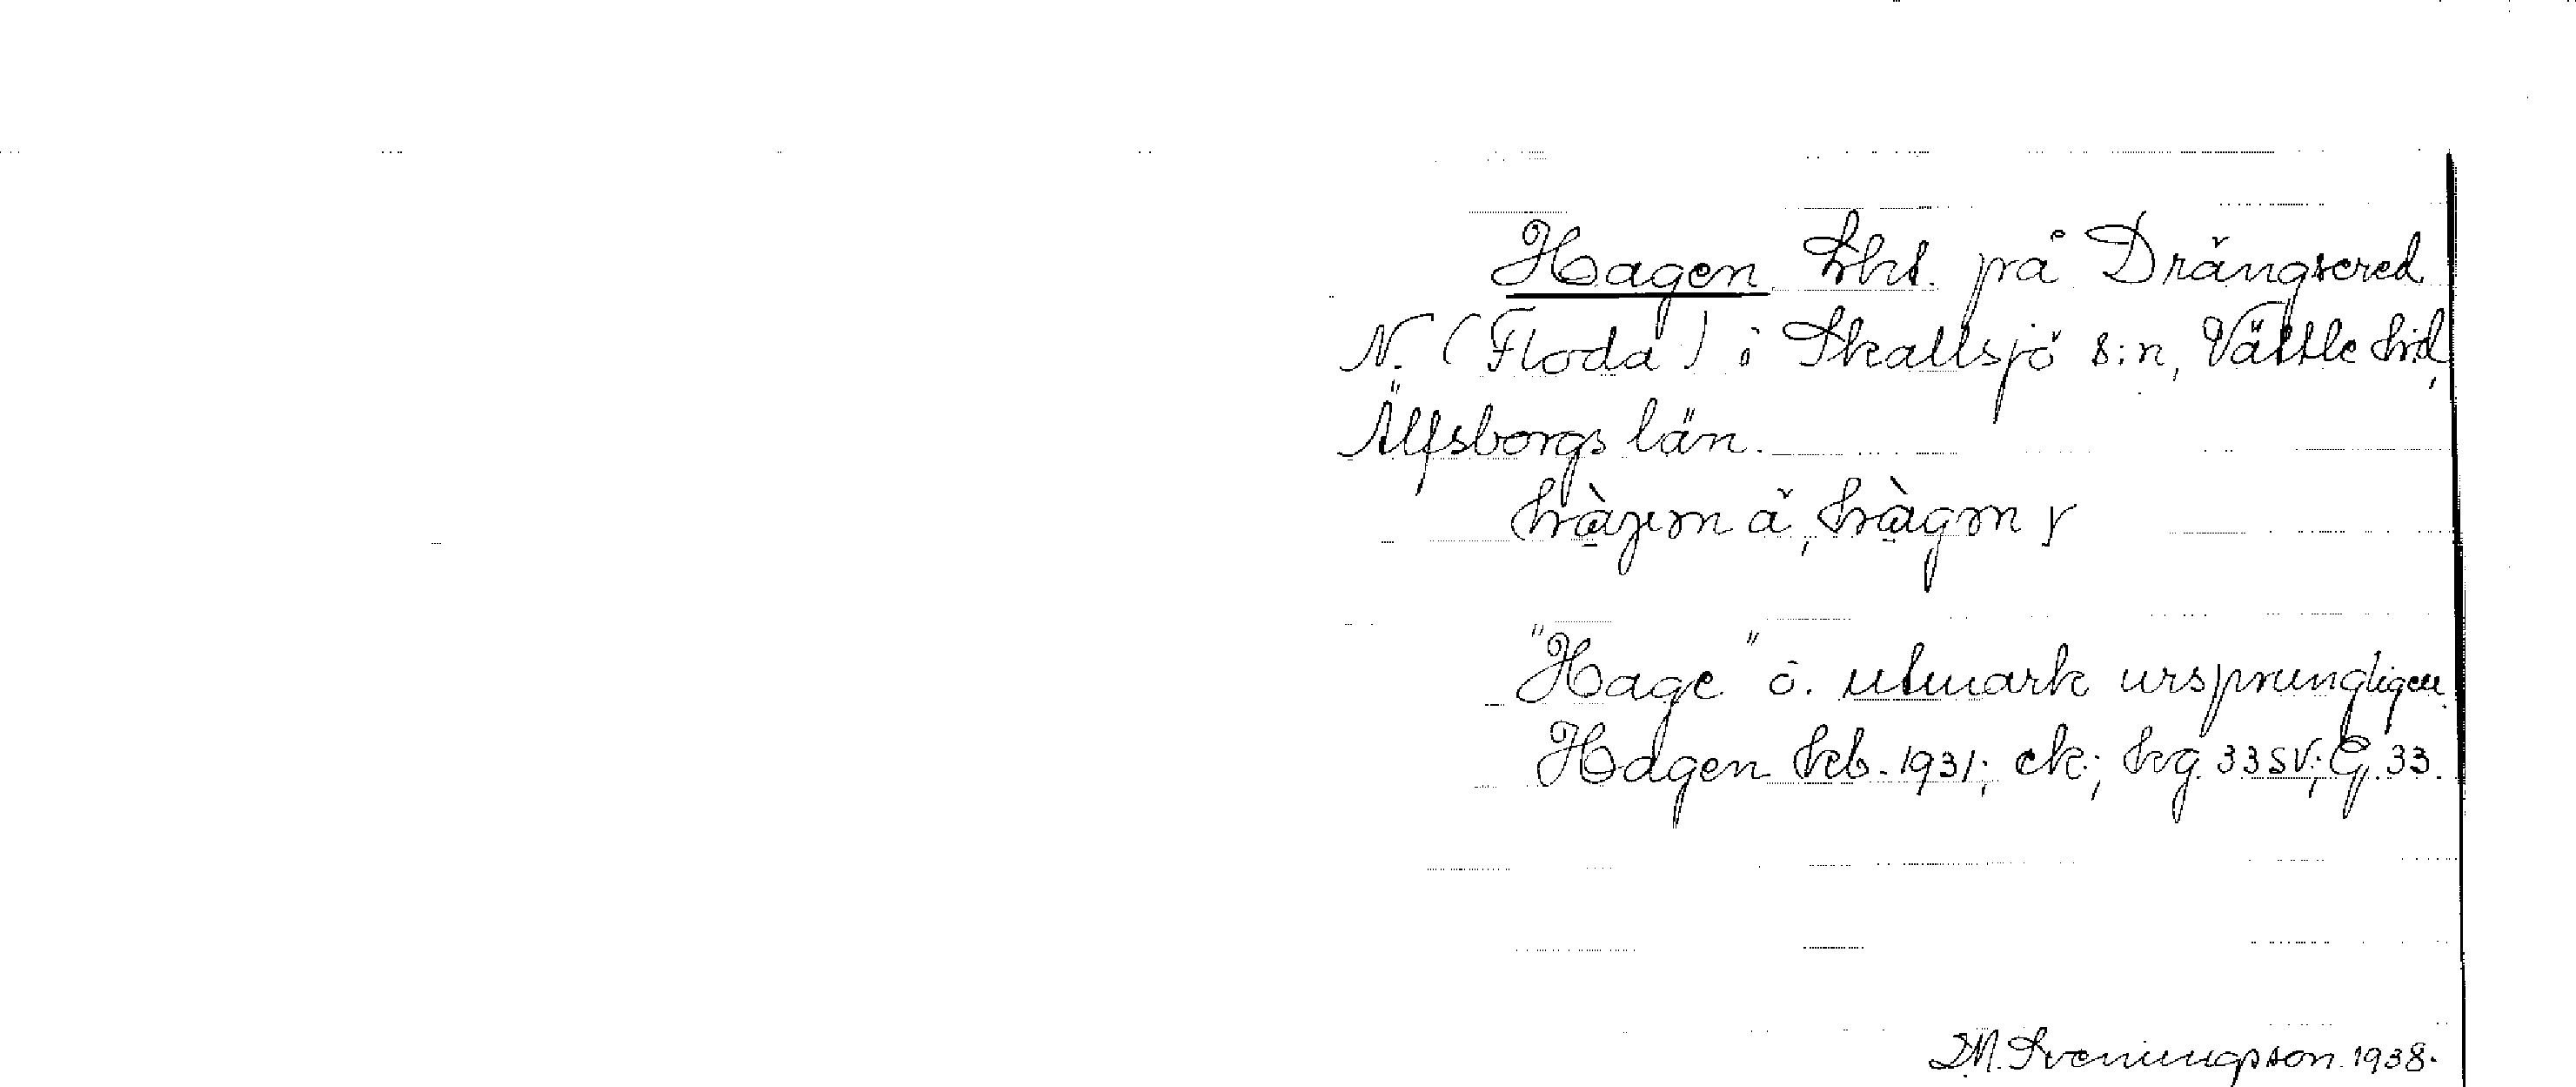 Hagen lht. på Drängsered
N. (Floda) i Skallsjö s:n, Vättle hd,
Älfsborgs län.
"Hage" o. utmark ursprungligen
Hagen kb. 1931; ek; hg 33 SV; G. 33.
D.M. Sveningson 1938.